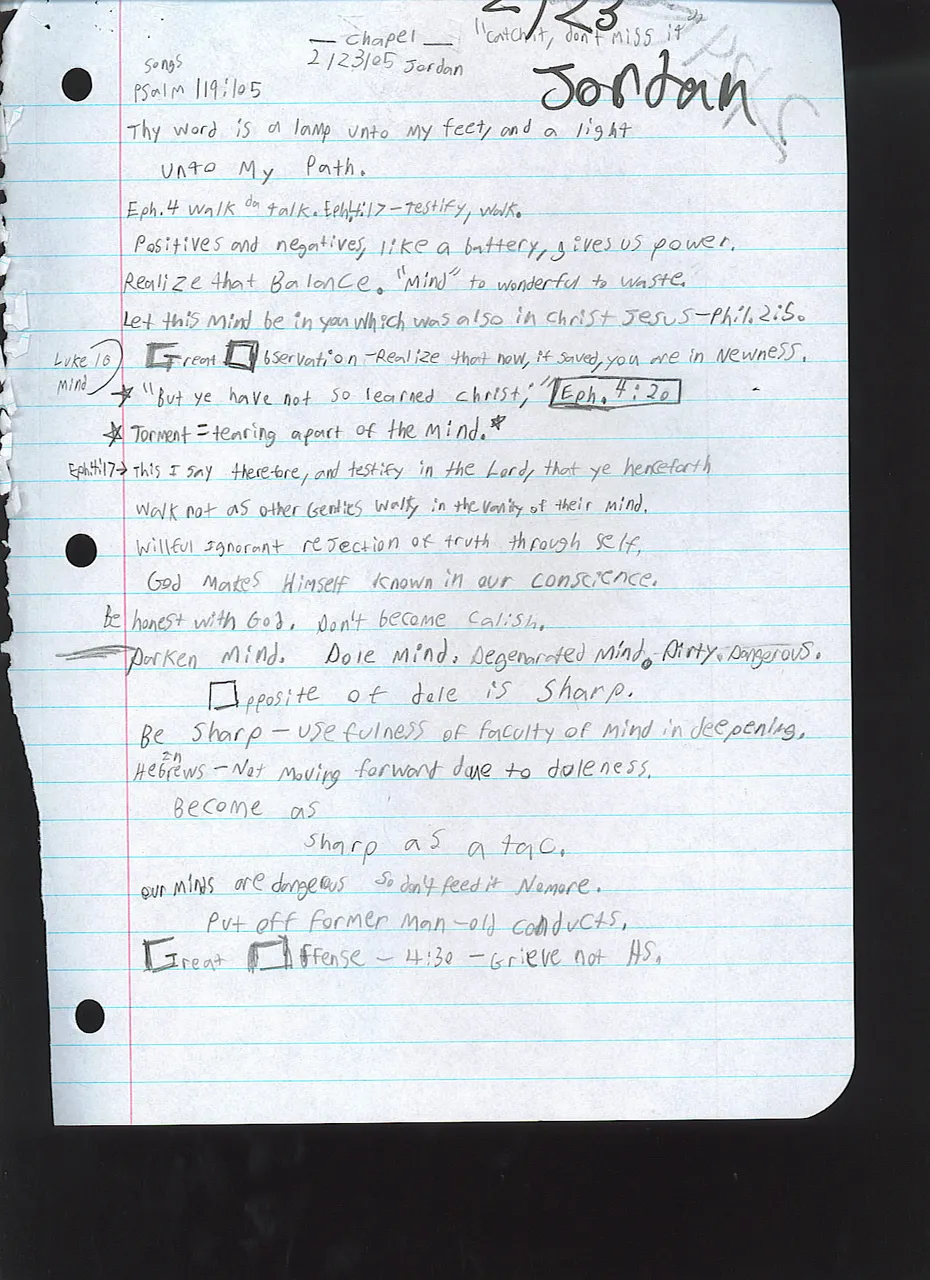 2/23
— Chapel — "Catch it, don't miss it"
2/23/05 Jordan
Jordan
songs
Psalm 119:105
Thy word is a lamp unto my feet, and a light
unto My Path.
Eph. 4 walk da talk. Eph.4:17-Testify, walk.
Positives and negatives, like a battery, gives us power.
Realize that Balance. "Mind" to wonderful to waste.
Let this Mind be in you which was also in Christ Jesus-Phil. 2:5.
Luke 16 Great Observation -Realize that now, if saved, you are in Newness.
Mind
"But ye have not so learned Christ;" Eph. 4:20
Torment = tearing apart of the mind.
Eph.4:17→ This I say therefore, and testify in the Lord, that ye henceforth
walk not as other Gentiles walk, in the vanity of their mind.
Willful Ignorant rejection of truth through self.
God makes Himself known in our conscience.
Be honest with God. Don't become Calish.
Darken Mind. Dole Mind. Degenarated Mind. Dirty. Dangerous.
Opposite of dole is sharp.
Be Sharp - usefulness of faculty of mind in deepening.
In
Hebrews - Not moving forward due to doleness.
Become as
sharp as a tac.
our Minds are dangerous so don't feed it Nomore.
Put off former Man-old conducts.
Great Offense - 4:30 - Grieve not HS.